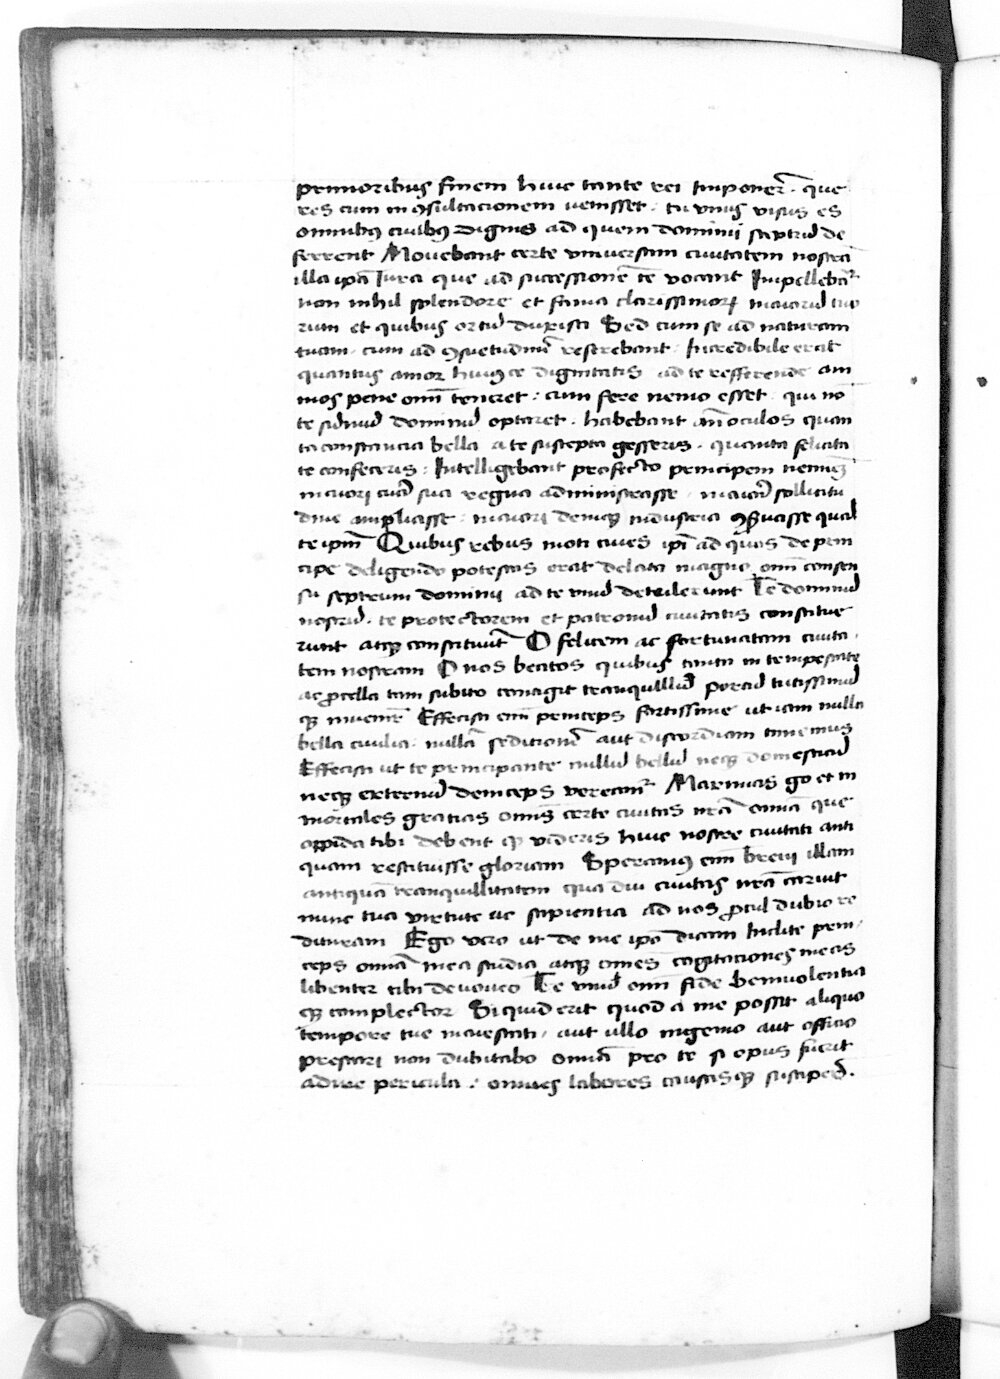 primoribus finem huic tante rei imponer̄. que
res cum in ꝯsultacionem uenisset. tu vnus visus es
omnibꝯ ciuibꝯ dignus ad quem dominii sceptrū de
ferrent Mouebant certe vniuersam ciuitatem nostrā
illa ip̄a Iura que ad successionē te vocant Impellebāt
non nihil splendore et fama clarissimorꝝ maiorū tuo
rum et quibus ortū duxisti Sed cum se ad naturam
tuam. cum ad ꝯsuetudinē referebant. Incredibile erat
quantus amor huiꝯce dignitatis ad te refferende ani
mos pene oīm teneret. cum fere nemo esset. qui nō
te sidnud dominū optaret. habebant an̄ oculos quan
ta constancia bella a te suscepta gesseris. quanta felicita
te confeceris: Intelligebant profecto principem neminē
maiori cura sua regna administrasse. maiori sollicitu
dine ampliasse. maiori deniqꝫ industria ꝯseruasse qual
te ipm̄ Quibus rebus moti ciues ip̄i ad quos de prin
cipe deligendo potestas erat delata magno oīm consen
su septrum dominii ad te vnū detulerunt Te dominū
nostrū. te protectorem et patronū ciuitatis constitue
runt atqꝫ constituūt O felicem ac fortunatam ciuita
tem nostram O nos beatos quibus tanta in tempestate
ac ꝓcella tam subito contigit tranquillū portū tutissimū
qꝫ inuenire Effecisti em̄ princeps fortissime ut iam nulla
bella ciuilia. nullā seditionē aut discordiam timemus
Effecisti ut te principante nullū bellū neqꝫ domesticū
neqꝫ externū deniceps vereamur Maximas go et in
mortales gratias omīs certe ciuitas nr̄a omīa que
oppida tibi debent qꝫ videris huic nostre ciuitati anti
quam restituisse gloriam Speramꝯ em̄ breui illam
antiquā tranquillitatem qua diu ciuitas nr̄a caruit
nunc tua virtute ac sapientia ad nos ꝓcul dubio re
dituram Ego vero ut de me ip̄o dicam Inclite prin
ceps omīa mea studia atqꝫ omēs cogitationes meas
libenter tibi deuoueo Te vnū omī fide beniuolentia
qꝫ complector Si quid erit quod a me possit aliquo
tempore tue maiestati. aut ullo ingenio aut officio
prestari non dubitabo omīa pro te si opus fuerit
adire pericula: omnes labores causasqꝫ suscipe͞r.